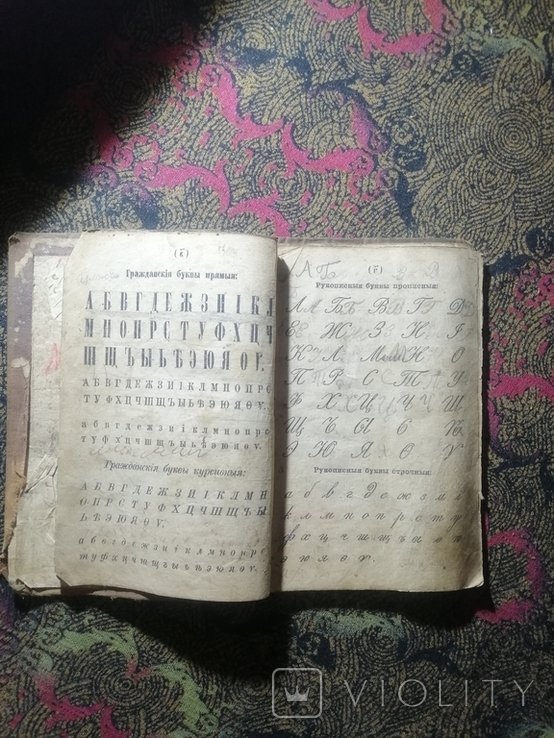 (в)
Гражданскія буквы прямыя:
А Б В Г Д Е Ж З И І К Л
М Н О П Р С Т У Ф Х Ц Ч
Ш Щ Ъ Ы Ь Ѣ Э Ю Я Ѳ Ѵ.
А Б В Г Д Е Ж З И І К Л М Н О П Р С
Т У Ф Х Ц Ч Ш Щ Ъ Ы Ь Ѣ Э Ю Я Ѳ Ѵ.
а б в г д е ж з и і к л м н о п р с
т у ф х ц ч ш щ ъ ы ь ѣ э ю я ѳ ѵ.
Гражданскія буквы курсивныя:
А Б В Г Д Е Ж З И І К Л М Н
О П Р С Т У Ф Х Ц Ч Ш Щ Ъ Ы
Ь Ѣ Э Ю Я Ѳ Ѵ.
а б в г д е ж з и і к л м н о п р с
т у ф х ц ч ш щ ъ ы ь ѣ э ю я ѳ ѵ.
А Б
(г)
Рукописныя буквы прописныя:
А Б В Г Д
Е Ж З И І
К Л М Н О
П Р С Т У
Ф Х Ц Ч Ш
Щ Ъ Ы Ь Ѣ
Э Ю Я Ѳ Ѵ
Рукописныя буквы строчныя:
а б в г д е ж з и і
к л м н о п р с т у
ф х ц ч ш щ ъ ы ь ѣ
э ю я ѳ ѵ.
VIOLITY